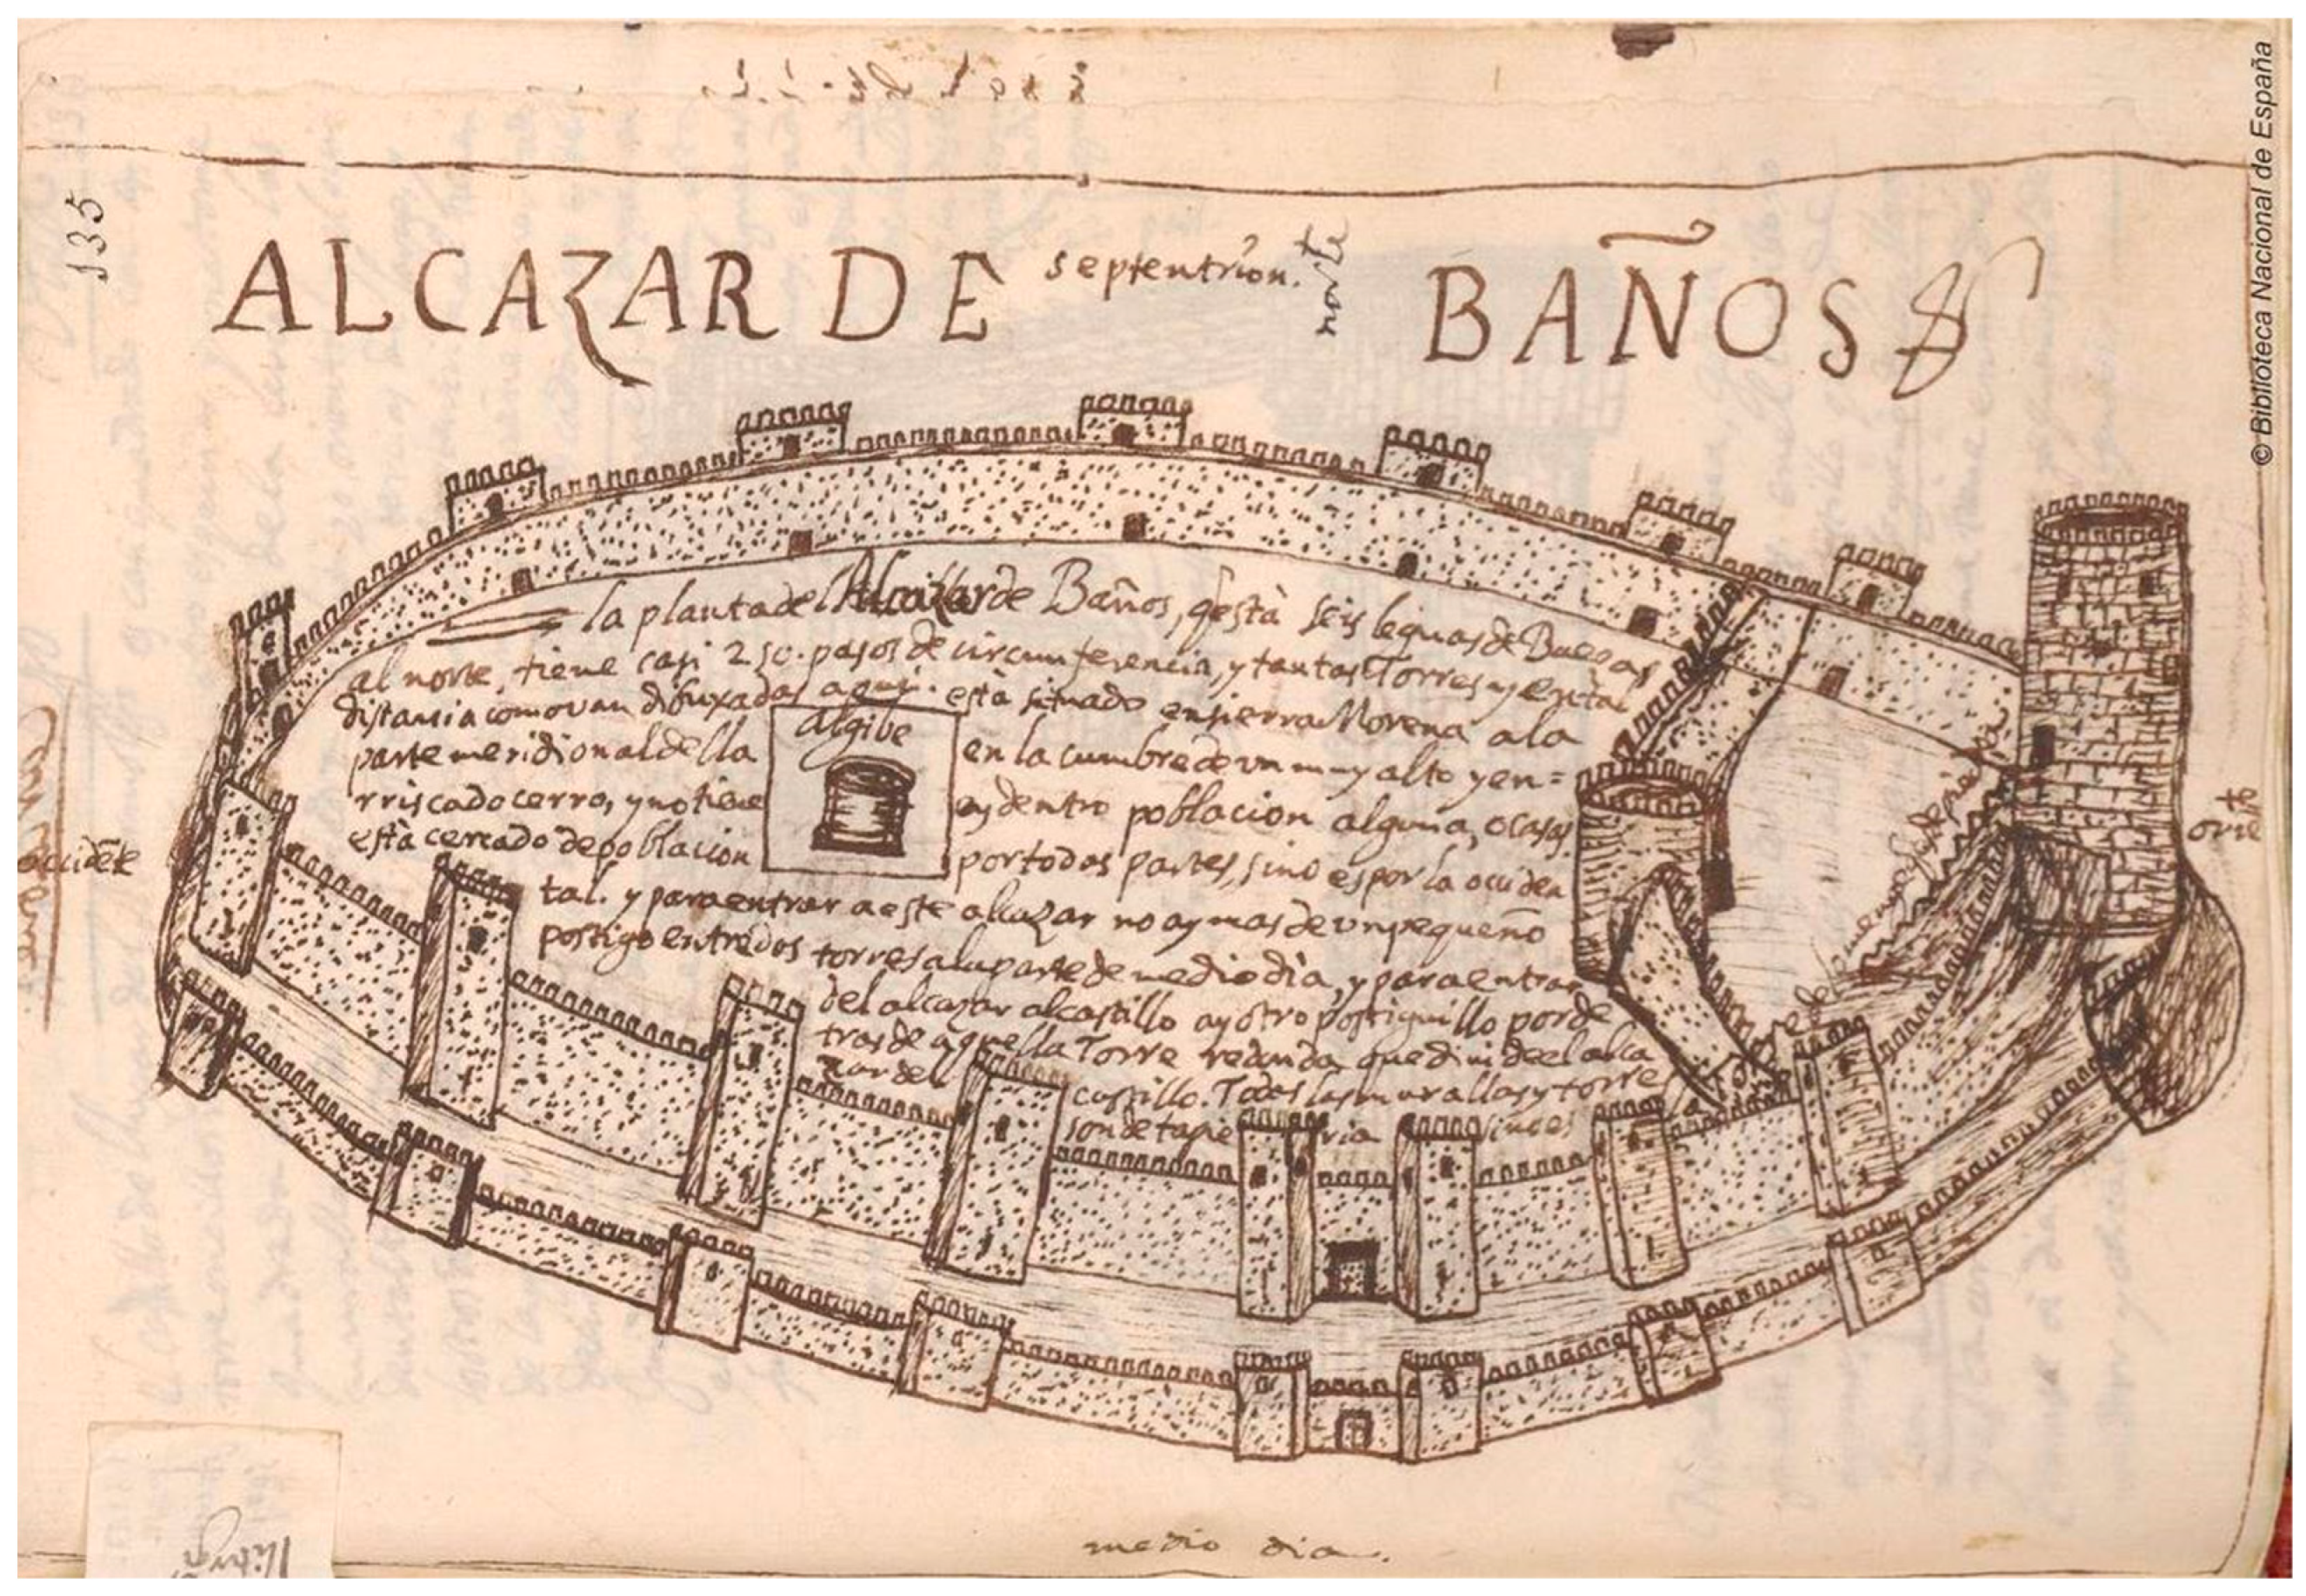 135
ALCAZAR DE
septentrion.
norte
BAÑOS
© Biblioteca Nacional de España
la planta del Alcazar de Baños, q̃ està seis leguas de Baeças
al norte, tiene casi 250. pasos de circumferencia, y tantas Torres y en tal
distansia como van dibuxadas aqui. està situado en sierra Morena a la
parte meridional della en la cumbre de un muy alto y en=
rriscado cerro, y no tiene ay dentro poblacion alguna, o casas
està cercado de poblacion por todas partes, sino es por la occiden
tal. y para entrar a este alcazar no ay mas de un pequeño
postigo entre dos torres a la parte de medio dia, y para entrar
del alcazar al castillo ay otro postiguillo por de
tras de aquella Torre redonda que divide el alca
zar del castillo. Todas las murallas y torres
son de tapieria
algibe
occidẽte
oriẽte
medio dia.